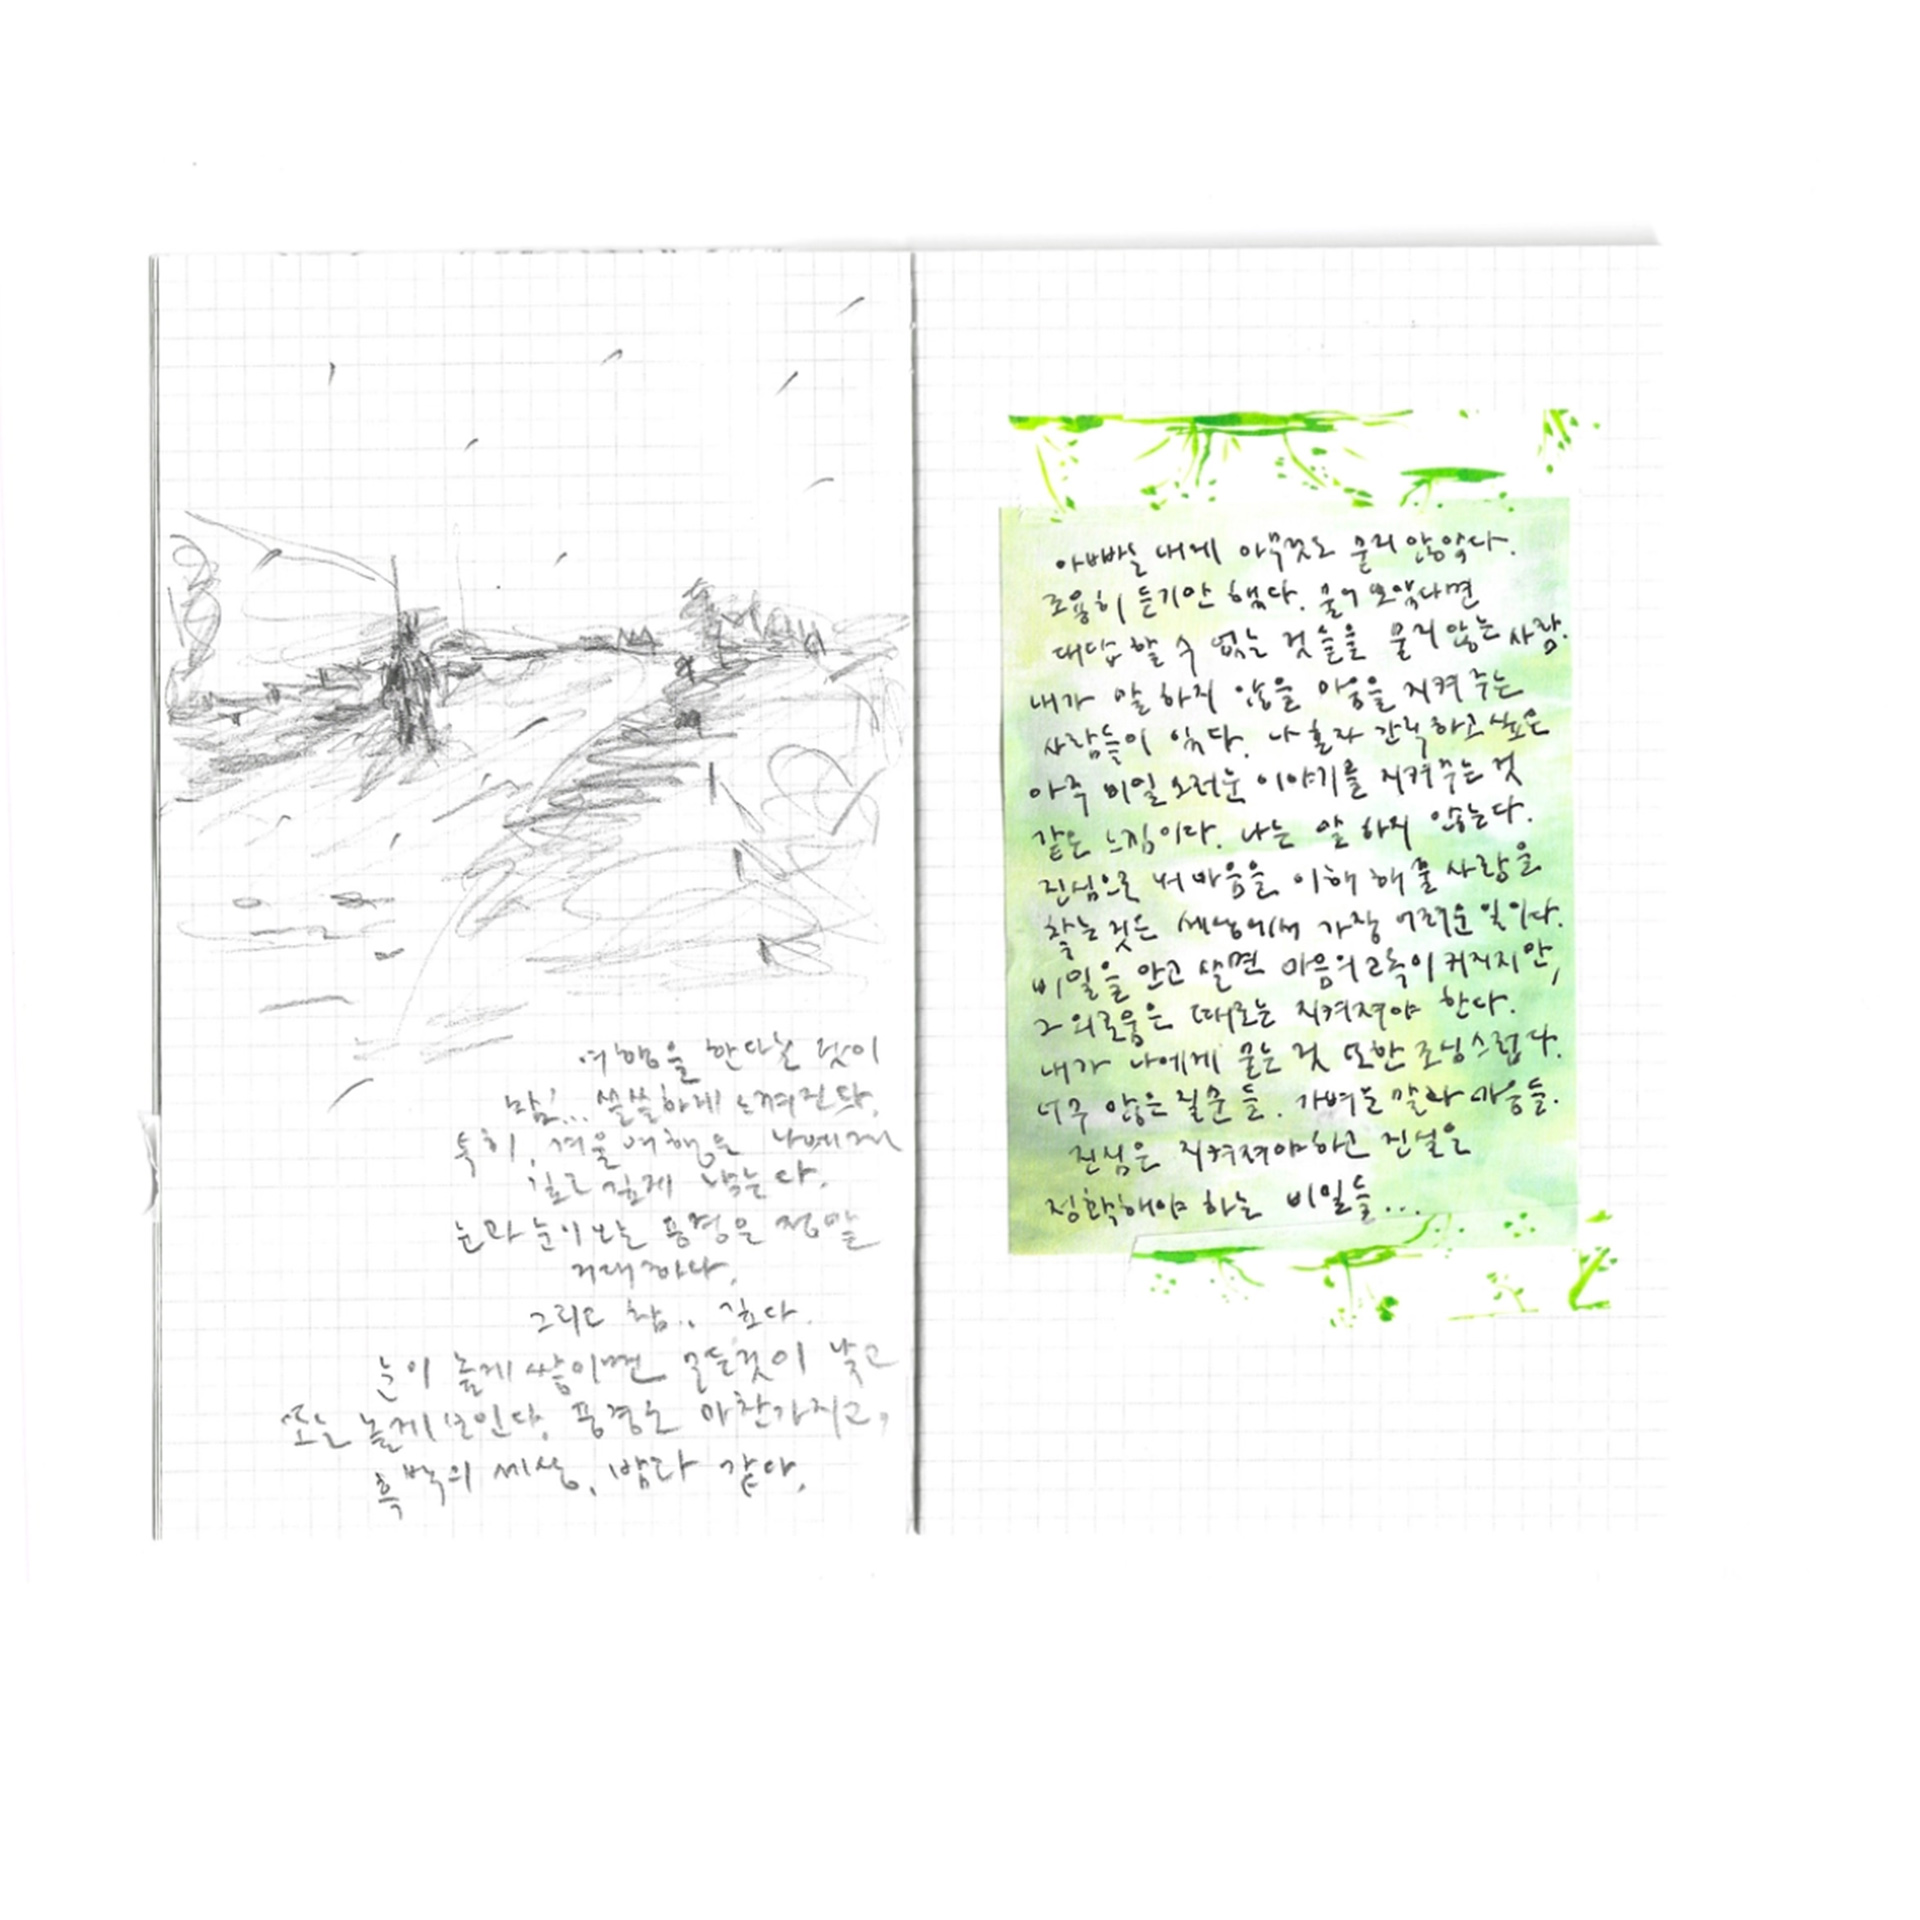 여행을 한다는 것이
참... 쓸쓸하게 느껴진다.
특히, 겨울 여행은 나에게
길고 깊게 남는다.
눈과 눈이 보는 풍경은 정말
거대하다.
그리고 참.. 깊다.
눈이 높게 쌓이면 모든것이 낮고
또는 높게 보인다. 풍경도 마찬가지고,
흑백의 세상. 밤과 같아.
아빠는 내게 아무것도 묻지 않았다.
조용히 듣기만 했다. 물어 보았다면
대답 할 수 없는 것들을 묻지 않는 사람.
내가 말 하지 않을 마음을 지켜 주는
사람들이 있다. 나 혼자 간직하고 싶은
아주 비밀스러운 이야기를 지켜주는 것
같은 느낌이다. 나는 말 하지 않는다.
진심으로 내 마음을 이해 해 줄 사람을
찾는 것은 세상에서 가장 어려운 일이다.
비밀을 안고 살면 마음의 고독이 커지지만,
그 외로움은 때로는 지켜져야 한다.
내가 나에게 묻는 것 또한 조심스럽다.
너무 많은 질문들. 가벼운 말과 마음들.
진심은 지켜져야하고 진실은
정확해야 하는 비밀들...